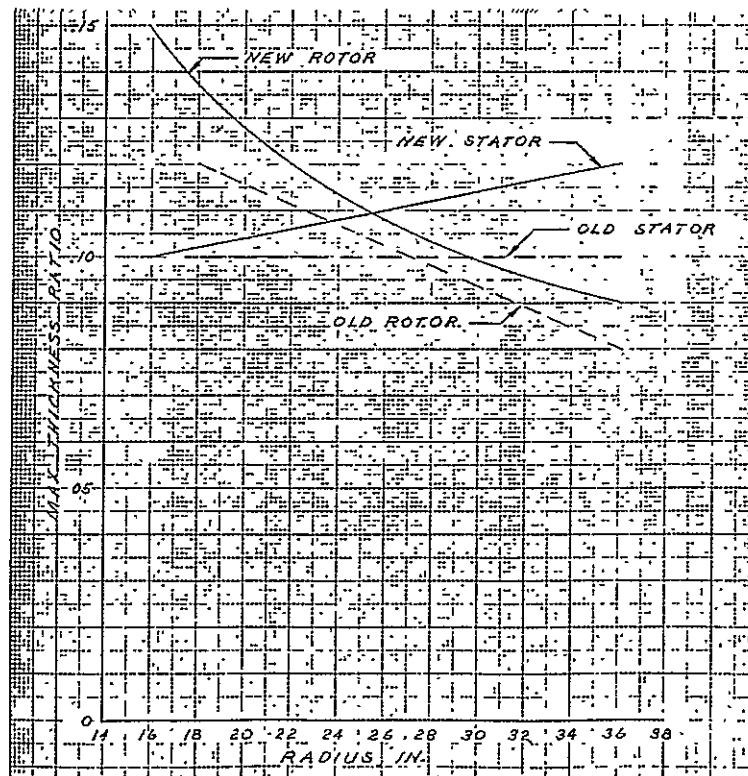 .15
NEW ROTOR
NEW STATOR
OLD STATOR
.10
OLD ROTOR
MAX THICKNESS RATIO
.05
0
14 16 18 20 22 24 26 28 30 32 34 36 38
RADIUS, IN.